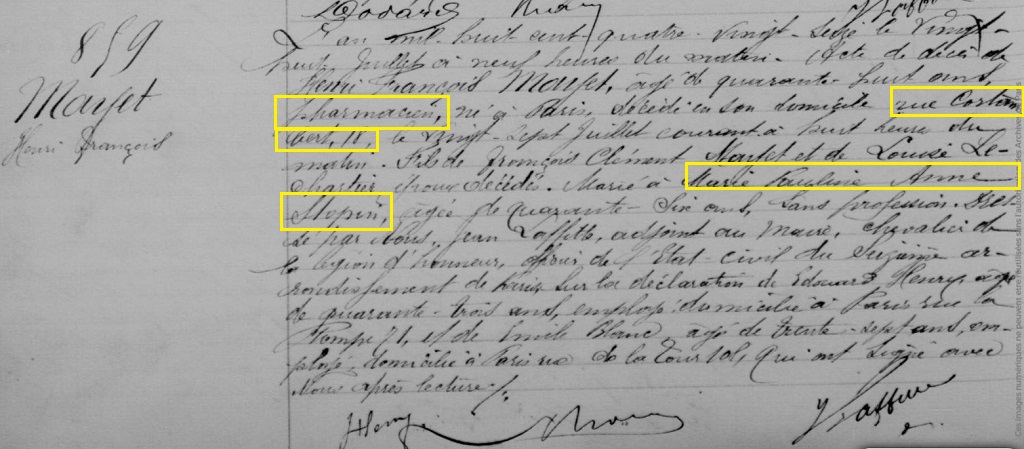 859
Maylet
Henri François
L'an mil huit cent quatre-vingt-seize le vingt-
huit Juillet à neuf heures du matin. Acte de décès de
Henri François, âgé de quarante huit ans,
Pharmacien, né à Paris, décédé en son domicile rue
11, le vingt-sept Juillet courant à huit heures du
matin. Fils de François Clément et de Louise Le-
époux décédés. Marié à Marie Pauline Anne
âgée de quarante-six ans, sans profession. Dres-
sé par Nous, Jean Laffitte, adjoint au Maire, chevalier de
la légion d'honneur, officier de l'Etat-civil du Seizième ar-
rondissement de Paris sur la déclaration de Edouard Henry, âgé
de quarante-trois ans, employé domicilié à Paris rue la
Pompe 71, et de Emile Blanc âgé de trente-sept ans, em-
ployé, domicilié à Paris rue de la Tour, qui ont signé avec
Nous après lecture./.
Henry